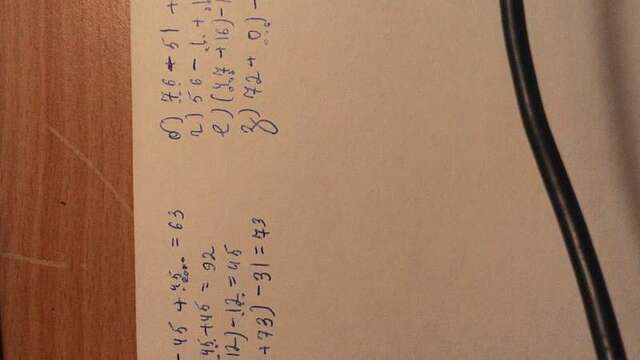 - 45 + 45 = 63
45 + 45 = 92
12) - 12 = 45
+ 73) - 31 = 73
б) 76 - 51 +
г) 56 - 1 + 1
е) (47 + 16) - 1
з) 72 + 0) -